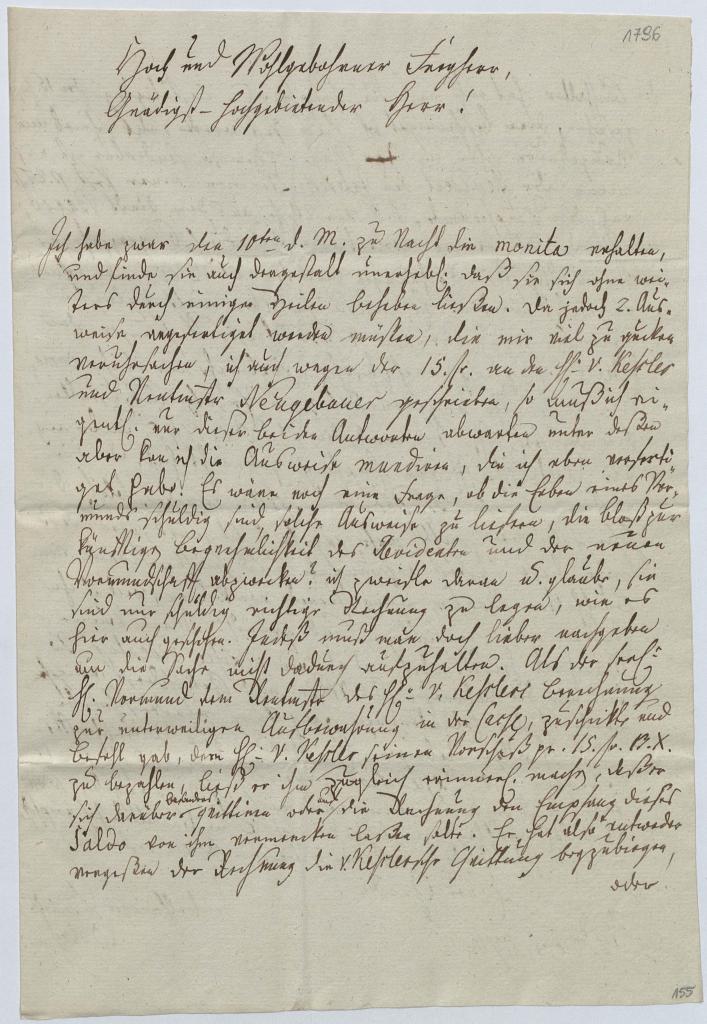 1796
Hoch und Wohlgebohrner Freyherr,
Gnädigst-hochgebietender Herr!
Ich habe zwar den 10ten d. M. zu Nacht die monita erhalten,
und finde sie auch dergestalt unerhebl. daß sie sich ohne wei-
ters durch einige Zeilen beheben ließen. Da jedoch 2. Aus-
weise angefertiget werden müssen, die mir viel zu
veruhrsachen, ich auch wegen der 15. fr. an den H. v. Kessler
und Rentmstr Neugebauer geschrieben, so muß ich ei-
gentl. nur dieser beiden Antworten abwarten unter dessen
aber kan ich die Ausweise mundiren, die ich eben verferti-
get habe. Es wäre noch eine Frage, ob die Erben eines Vor-
munds schuldig sind, solche Ausweise zu liefern, die bloß zur
künftigen begwehmlichkeit des Revidenten und der neuen
Vormundschaft abzwecken? ich zweifle daran u. glaube, sie
sind nur schuldig richtige Rechnung zu legen, wie es
hier auch geschehen. Indeß muß man doch lieber nachgeben
um die Sache nicht dadurch aufzuhalten. Als der seel.
H. Vormund dem Rentmstr des H. v. Kesslers
zur unterweiligen Aufbewahrung in der Casse, zuschickte und
befehl gab, dem H. v. Kessler seinen Vorschuß pr. 15. fr. 13. X.
zu bezahlen, ließ er ihm zugleich erinnerl. machen, daß er
sich darüber besonders quittiren oder auf die Rechnung den Empfang dieses
Saldo von ihm vermercken laßen solte. Er hat also entweder
vergeßen der Rechnung die v. Keslersche Quittung beyzubiegen,
oder
155